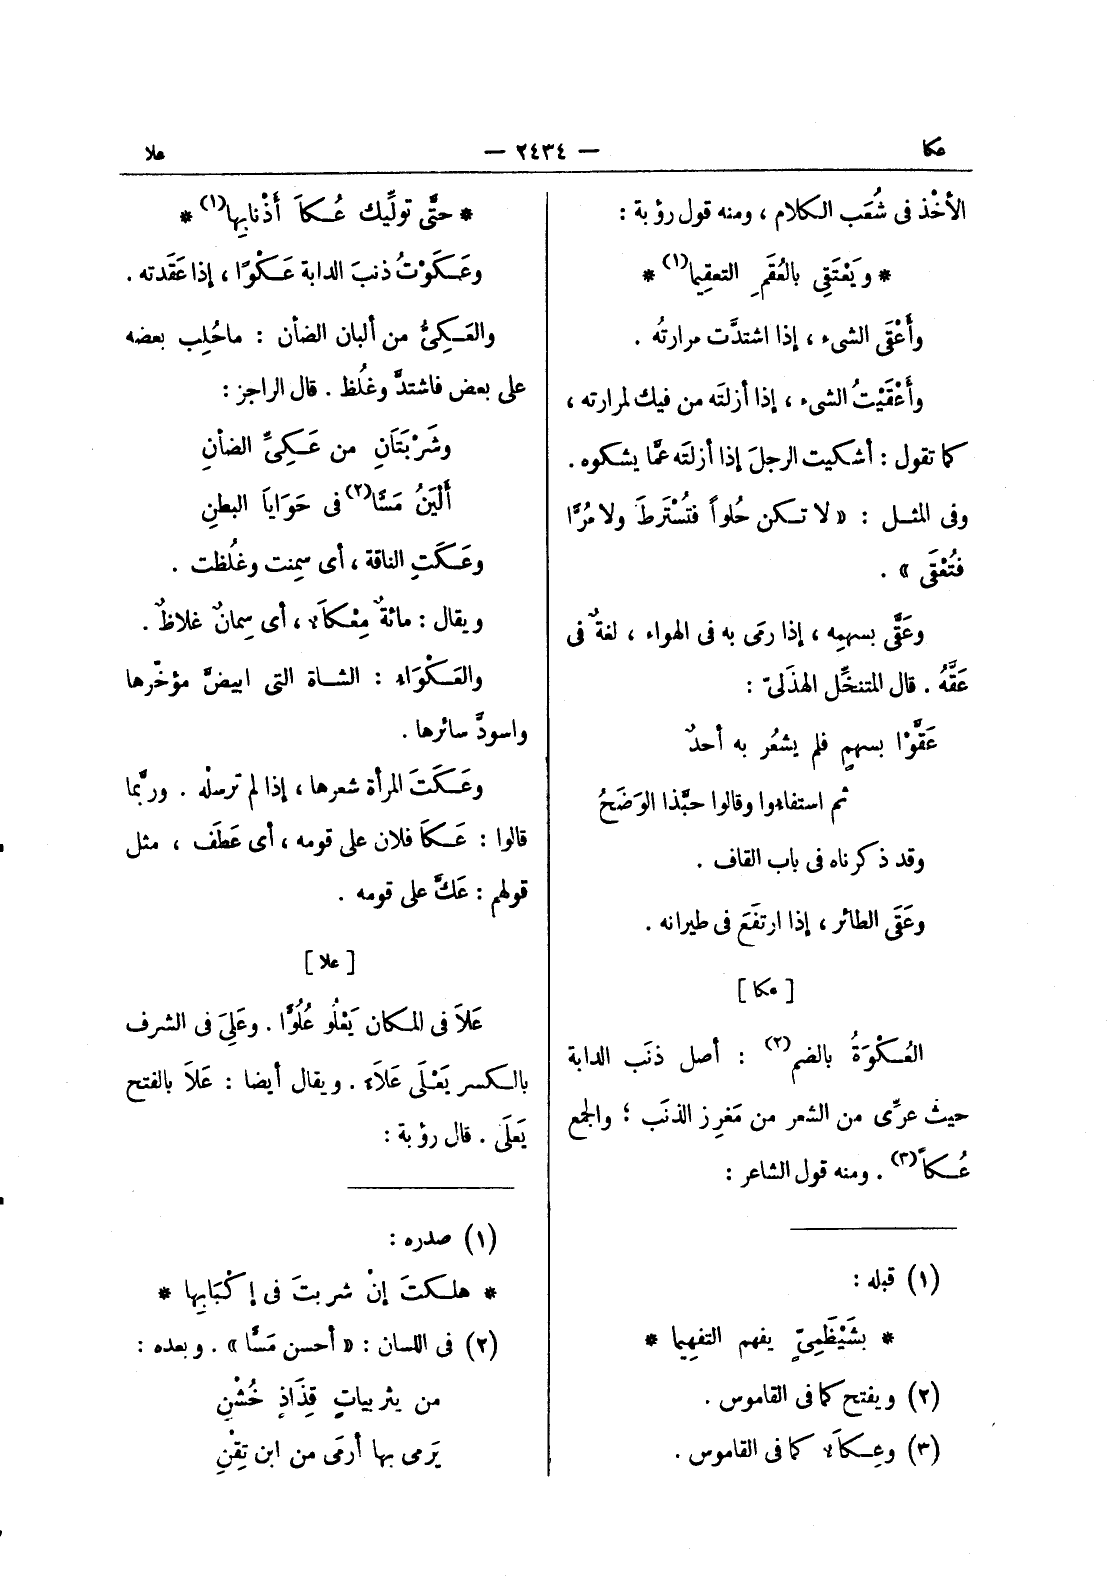 عكا
— ٢٤٣٤ —
علا
الأخْذ فى شُعَب الكلام ، ومنه قول رؤبة :
* ويَعْتَقِى بالعُقَمِ التعقِيما(١) *
وأَعْقَى الشىء ، إذا اشتدَّت مرارتُه .
وأَعْقَيْتُ الشىء ، إذا أزلتَه من فيك لمرارته ،
كما تقول : أشكيت الرجلَ إذا أزلتَه عمَّا يشكوه .
وفى المثل : « لا تكن حُلواً فتُسْتَرطَ ولا مُرًّا
فتُعْقَى » .
وعَقَّى بسهمِه ، إذا رمَى به فى الهواء ، لغةٌ فى
عَقَّهُ . قال المتنخِّل الهذَلىّ :
عَقَّوْا بسهمٍ فلم يشعُر به أحدٌ
ثم استفاءوا وقالوا حبَّذا الوَضَحُ
وقد ذكرناه فى باب القاف .
وعَقَى الطائر ، إذا ارتفَعَ فى طيرانه .
[ عكا ]
العُكْوَةُ بالضم(٢) : أصل ذنَب الدابة
حيث عرِّى من الشعر من مَغرِز الذنَب ؛ والجمع
عُكاً(٣) . ومنه قول الشاعر :
(١) قبله :
* بشَيْظَمِىٍّ يفهم التفهِيما *
(٢) ويفتح كما فى القاموس .
(٣) وعِكاَء كما فى القاموس .
* حتَّى تولِّيك عُكاَ أَذْنابِها(١) *
وعَكَوْتُ ذنبَ الدابة عَكْوًا ، إذا عَقَدته .
والعَكِىُّ من ألبان الضأن : ماحُلِب بعضه
على بعض فاشتدَّ وغلُظ . قال الراجز :
وشَرْبَتَانِ من عَكِىِّ الضأنِ
أَلْيَنُ مَسًّا(٢) فى حَوَاياَ البطنِ
وعَكَتِ الناقة ، أى سمِنت وغلُظت .
ويقال : مائةٌ مِعْكاَء ، أى سِمانٌ غلاظٌ .
والعَكْوَاء : الشاة التى ابيضَّ مؤخّرها
واسودَّ سائرها .
وعَكَتَ المرأة شعرها ، إذا لم ترسلْه . وربَّما
قالوا : عَكاَ فلان على قومه ، أى عَطَف ، مثل
قولهم : عَكَّ على قومه .
[ علا ]
عَلاَ فى المكان يَعْلُو عُلُوًّا . وعَلِىَ فى الشرف
بالكسر يَعْلَى عَلاَء . ويقال أيضا : عَلاَ بالفتح
يَعلَى . قال رؤبة :
(١) صدره :
* هلكتَ إنْ شربتَ فى إكْبَابِها *
(٢) فى اللسان : « أحسن مَسًّا » . وبعده :
من يثربياتٍ قِذَاذٍ خُشْنِ
يَرمى بها أرمَى من ابن تِقْنِ